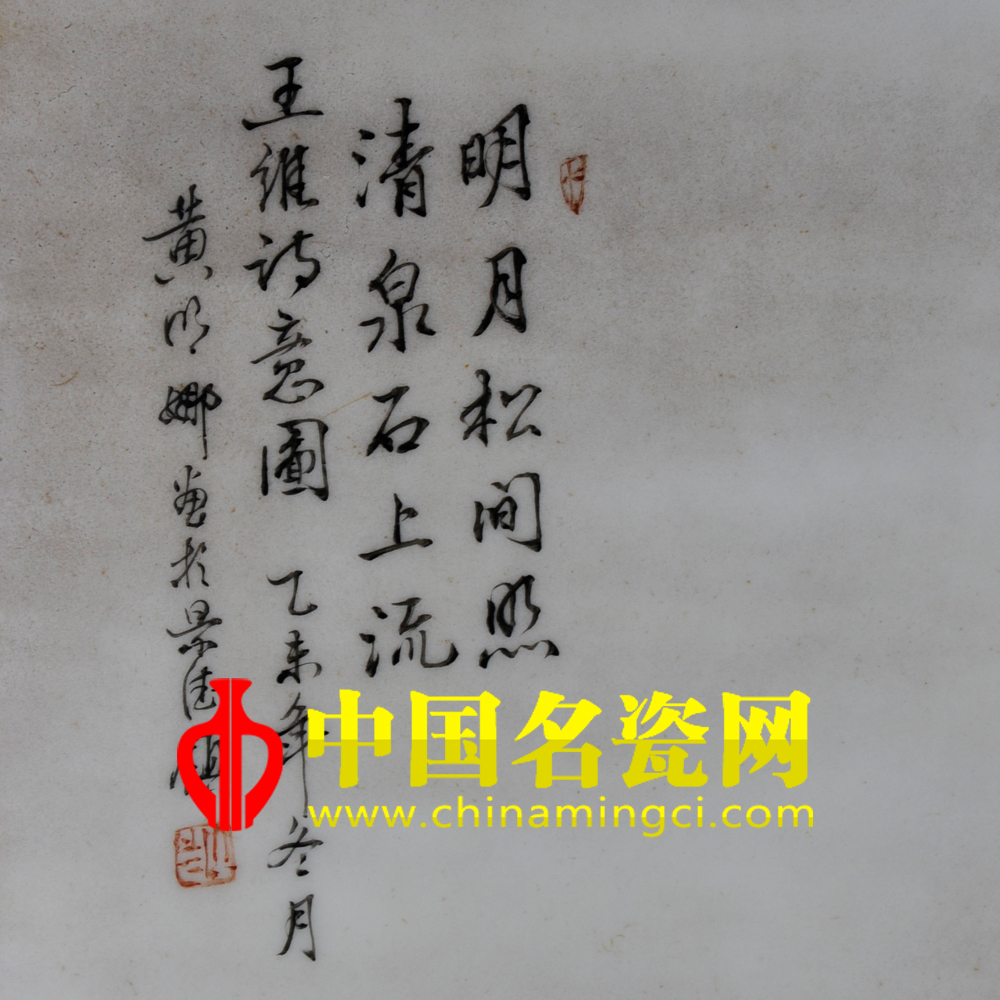 明月松间照
清泉石上流
王维诗意圖 乙未年冬月
黄明娜画於景德
中国名瓷网
www.chinamingci.com